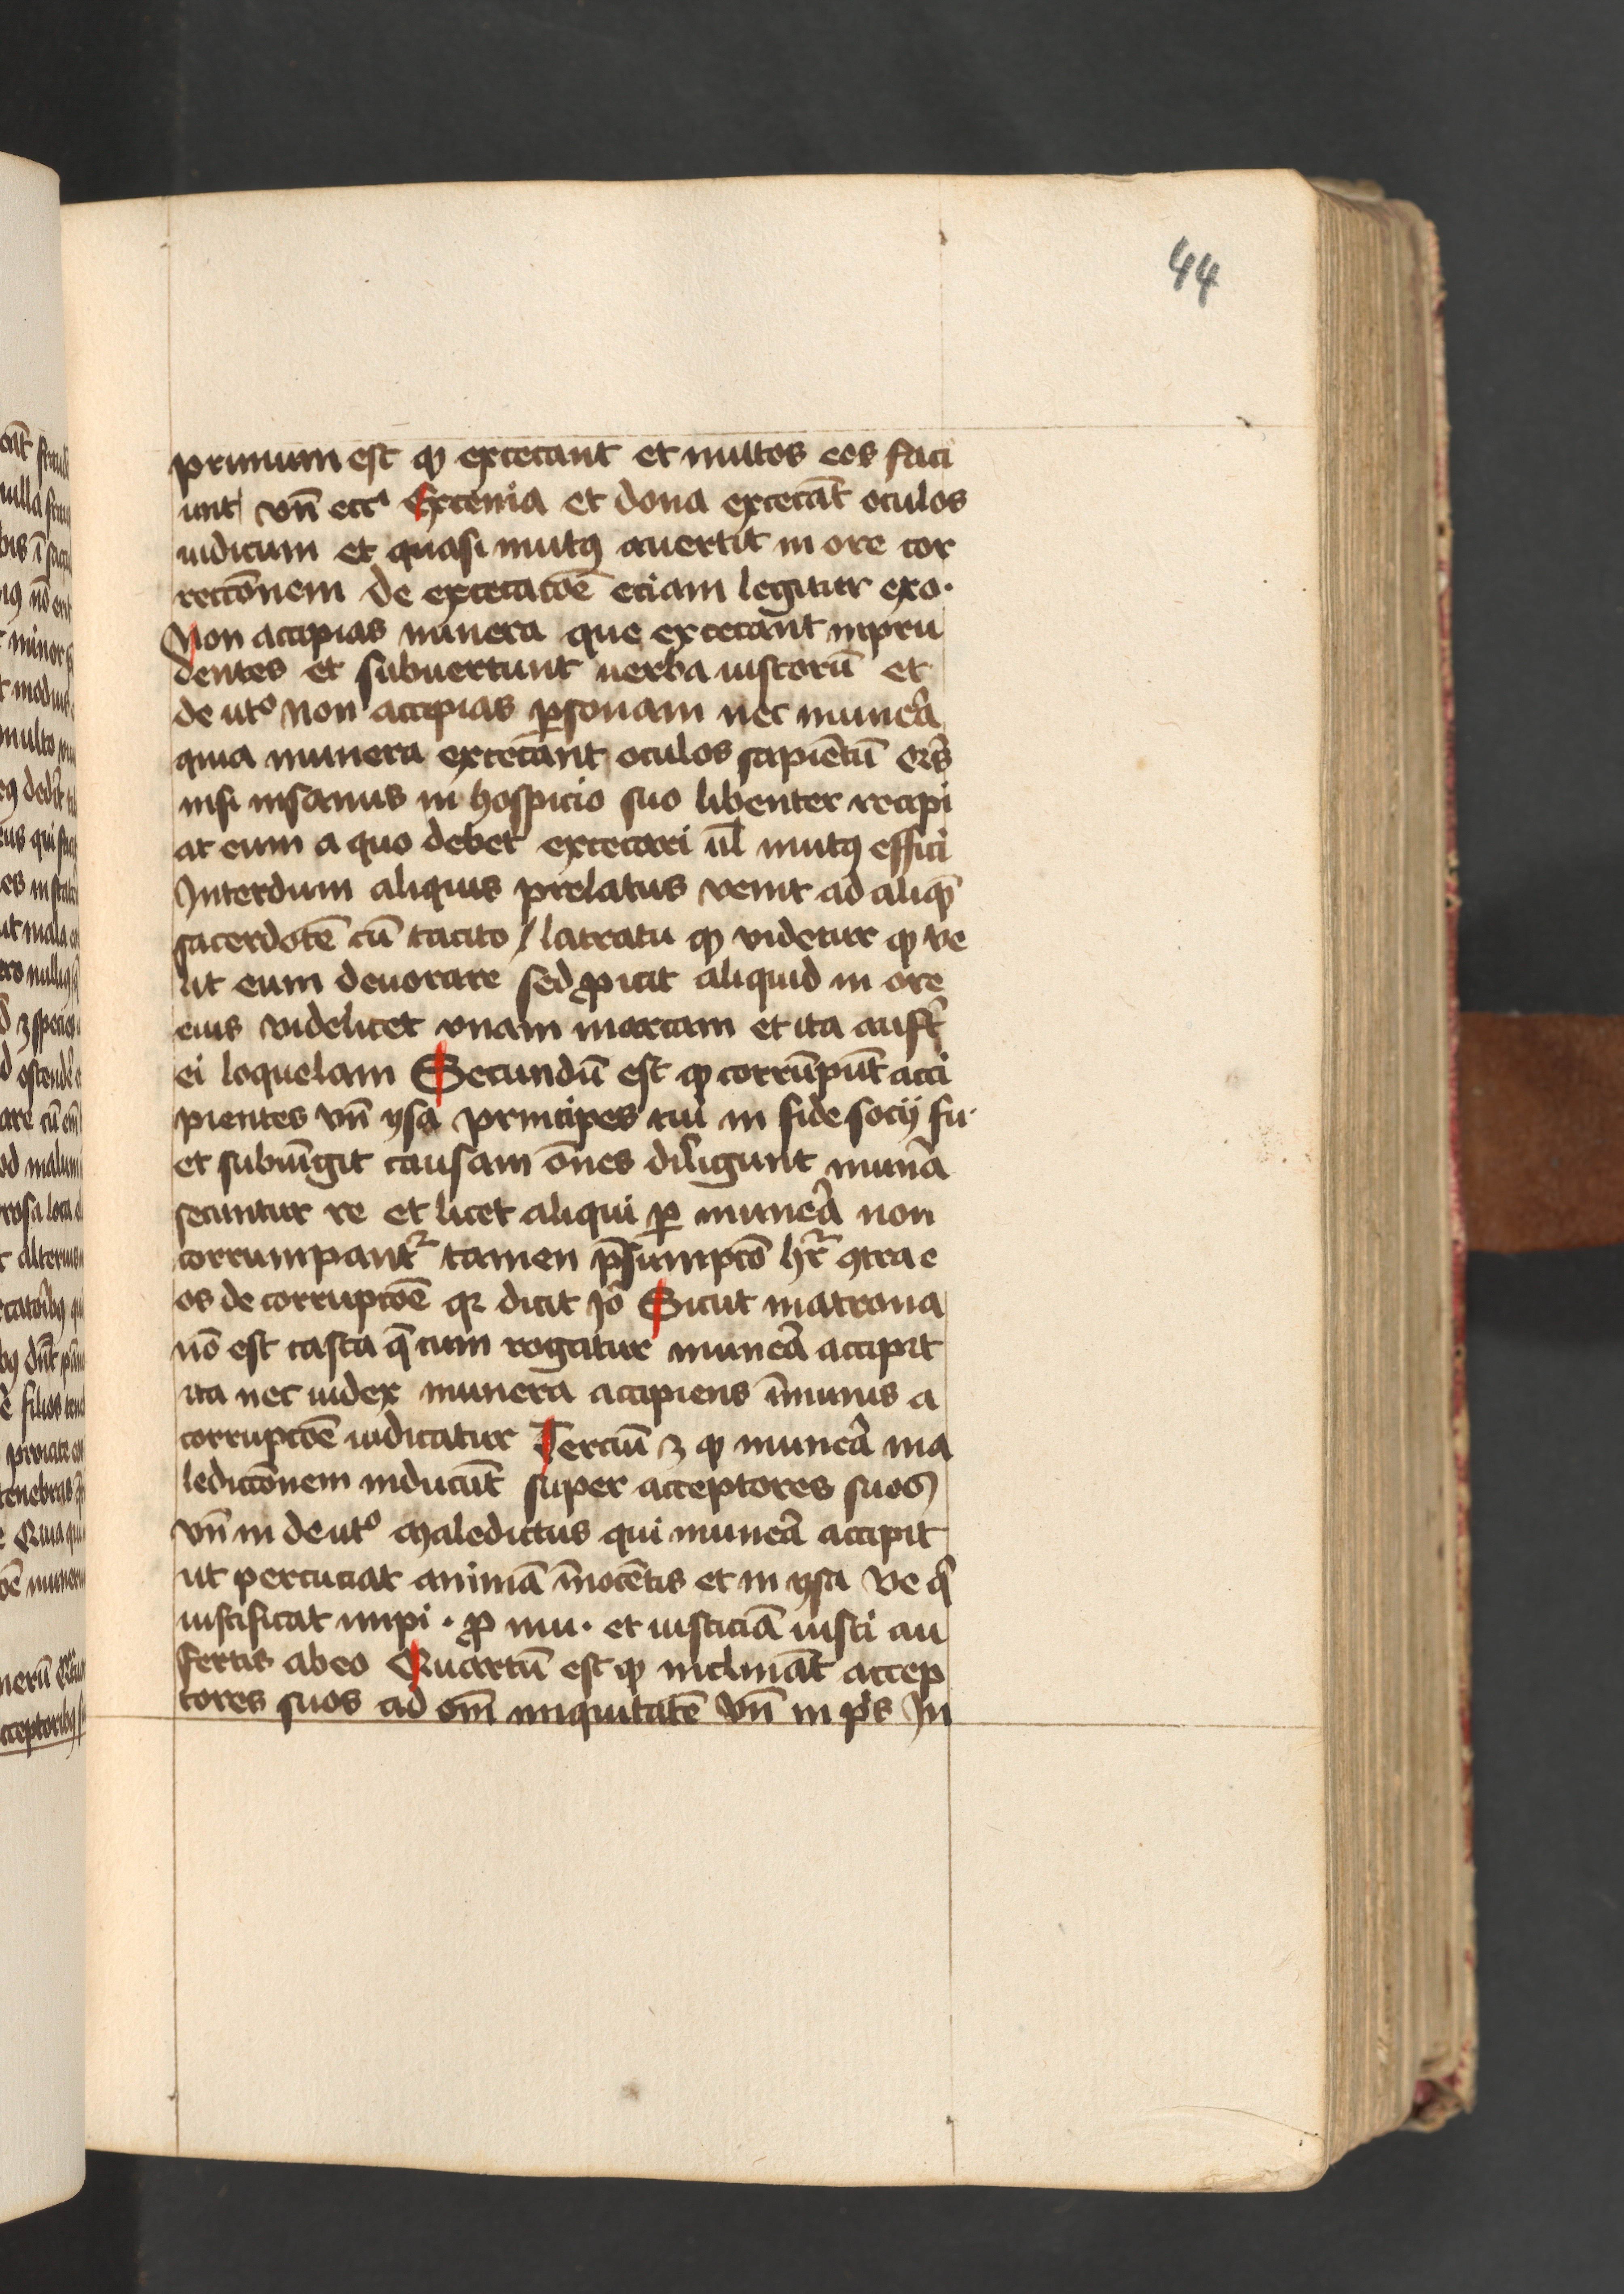 44
primum est ꝙ excecant et muttos eos faci
unt vn̄ eccͥ Excenia et dona excecāt oculos
iudicum et quasi mutꝯ auertit in ore cor
reccōnem de excecacōe eciam legitur exo·
Non accipias munera que excecant inpru
dentes et subuertunt uerba iustorū et
de utᵒ Non accipias ꝑsonam nec munẽa
quia munera excecant oculos sapiētū
nisi insanus in hospicio suo libenter recipi
at eum a quo debet excecari ul̄ mutꝯ effici
Interdum aliquis prelatus venit ad aliqꝫ
sacerdotē cū tacito / latratu ꝙ videtur ꝙ ve
lit eum deuorare sed ꝓicit aliquid in ore
eius videlicet vnam marcam et ita aufᵗ
ei loquelam Secundū est ꝙ corrūpūt acci
pientes vn̄ ysa principes tui in fide socij fu·
et subiūgit causam ōnes diligunt munẽa
secuntur re et licet aliqui ꝑ munẽa non
corrumpantᷣ tamen p̄sumpcō hr̄ ꝯtra e
os de corrupcōe qꝛ dicit Jo Sicut matrona
nō est casta q̄ cum rogatur munẽa accipit
ita nec iudex munera accipiens īmunis a
corrupcōe iudicatur Terciū ꝫ ꝙ munẽa ma
lediccōnem inducūt super acceptores suos
vn̄ in deutᵒ Maledictus qui munẽa accipit
ut percuciat animā īnocētis et in ysa Ve qͥ
iustificat impi · ꝓ mu · et iusticiā iusti au
fertis ab eo Quartū est ꝙ inclināt accep
tores suos ad om̄ iniquitatē vn̄ in pͥs In